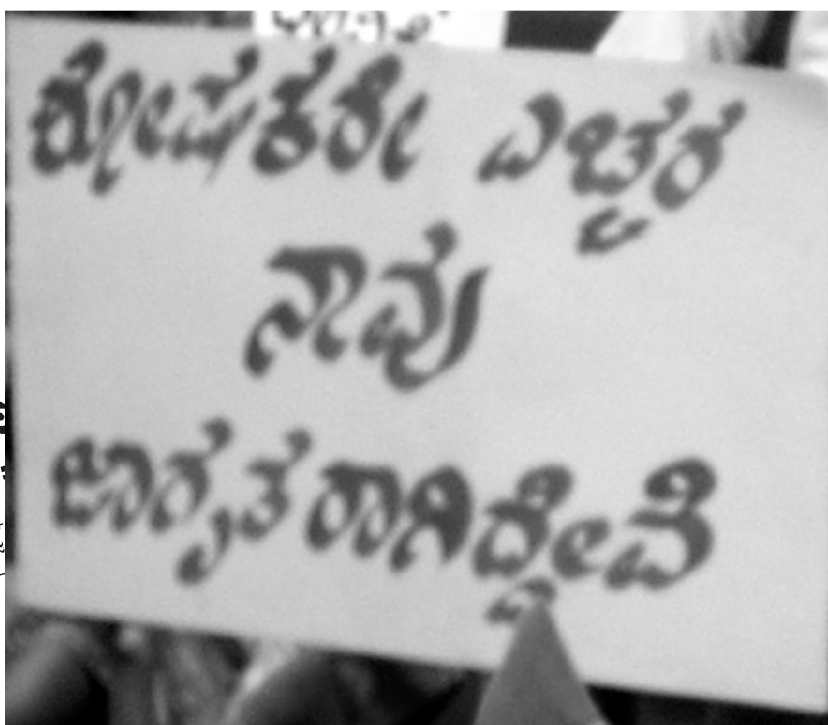 ಶೋಷಕರೇ ಎಚ್ಚರ
ನಾವು
ಜಾಗೃತರಾಗಿದ್ದೇವೆ